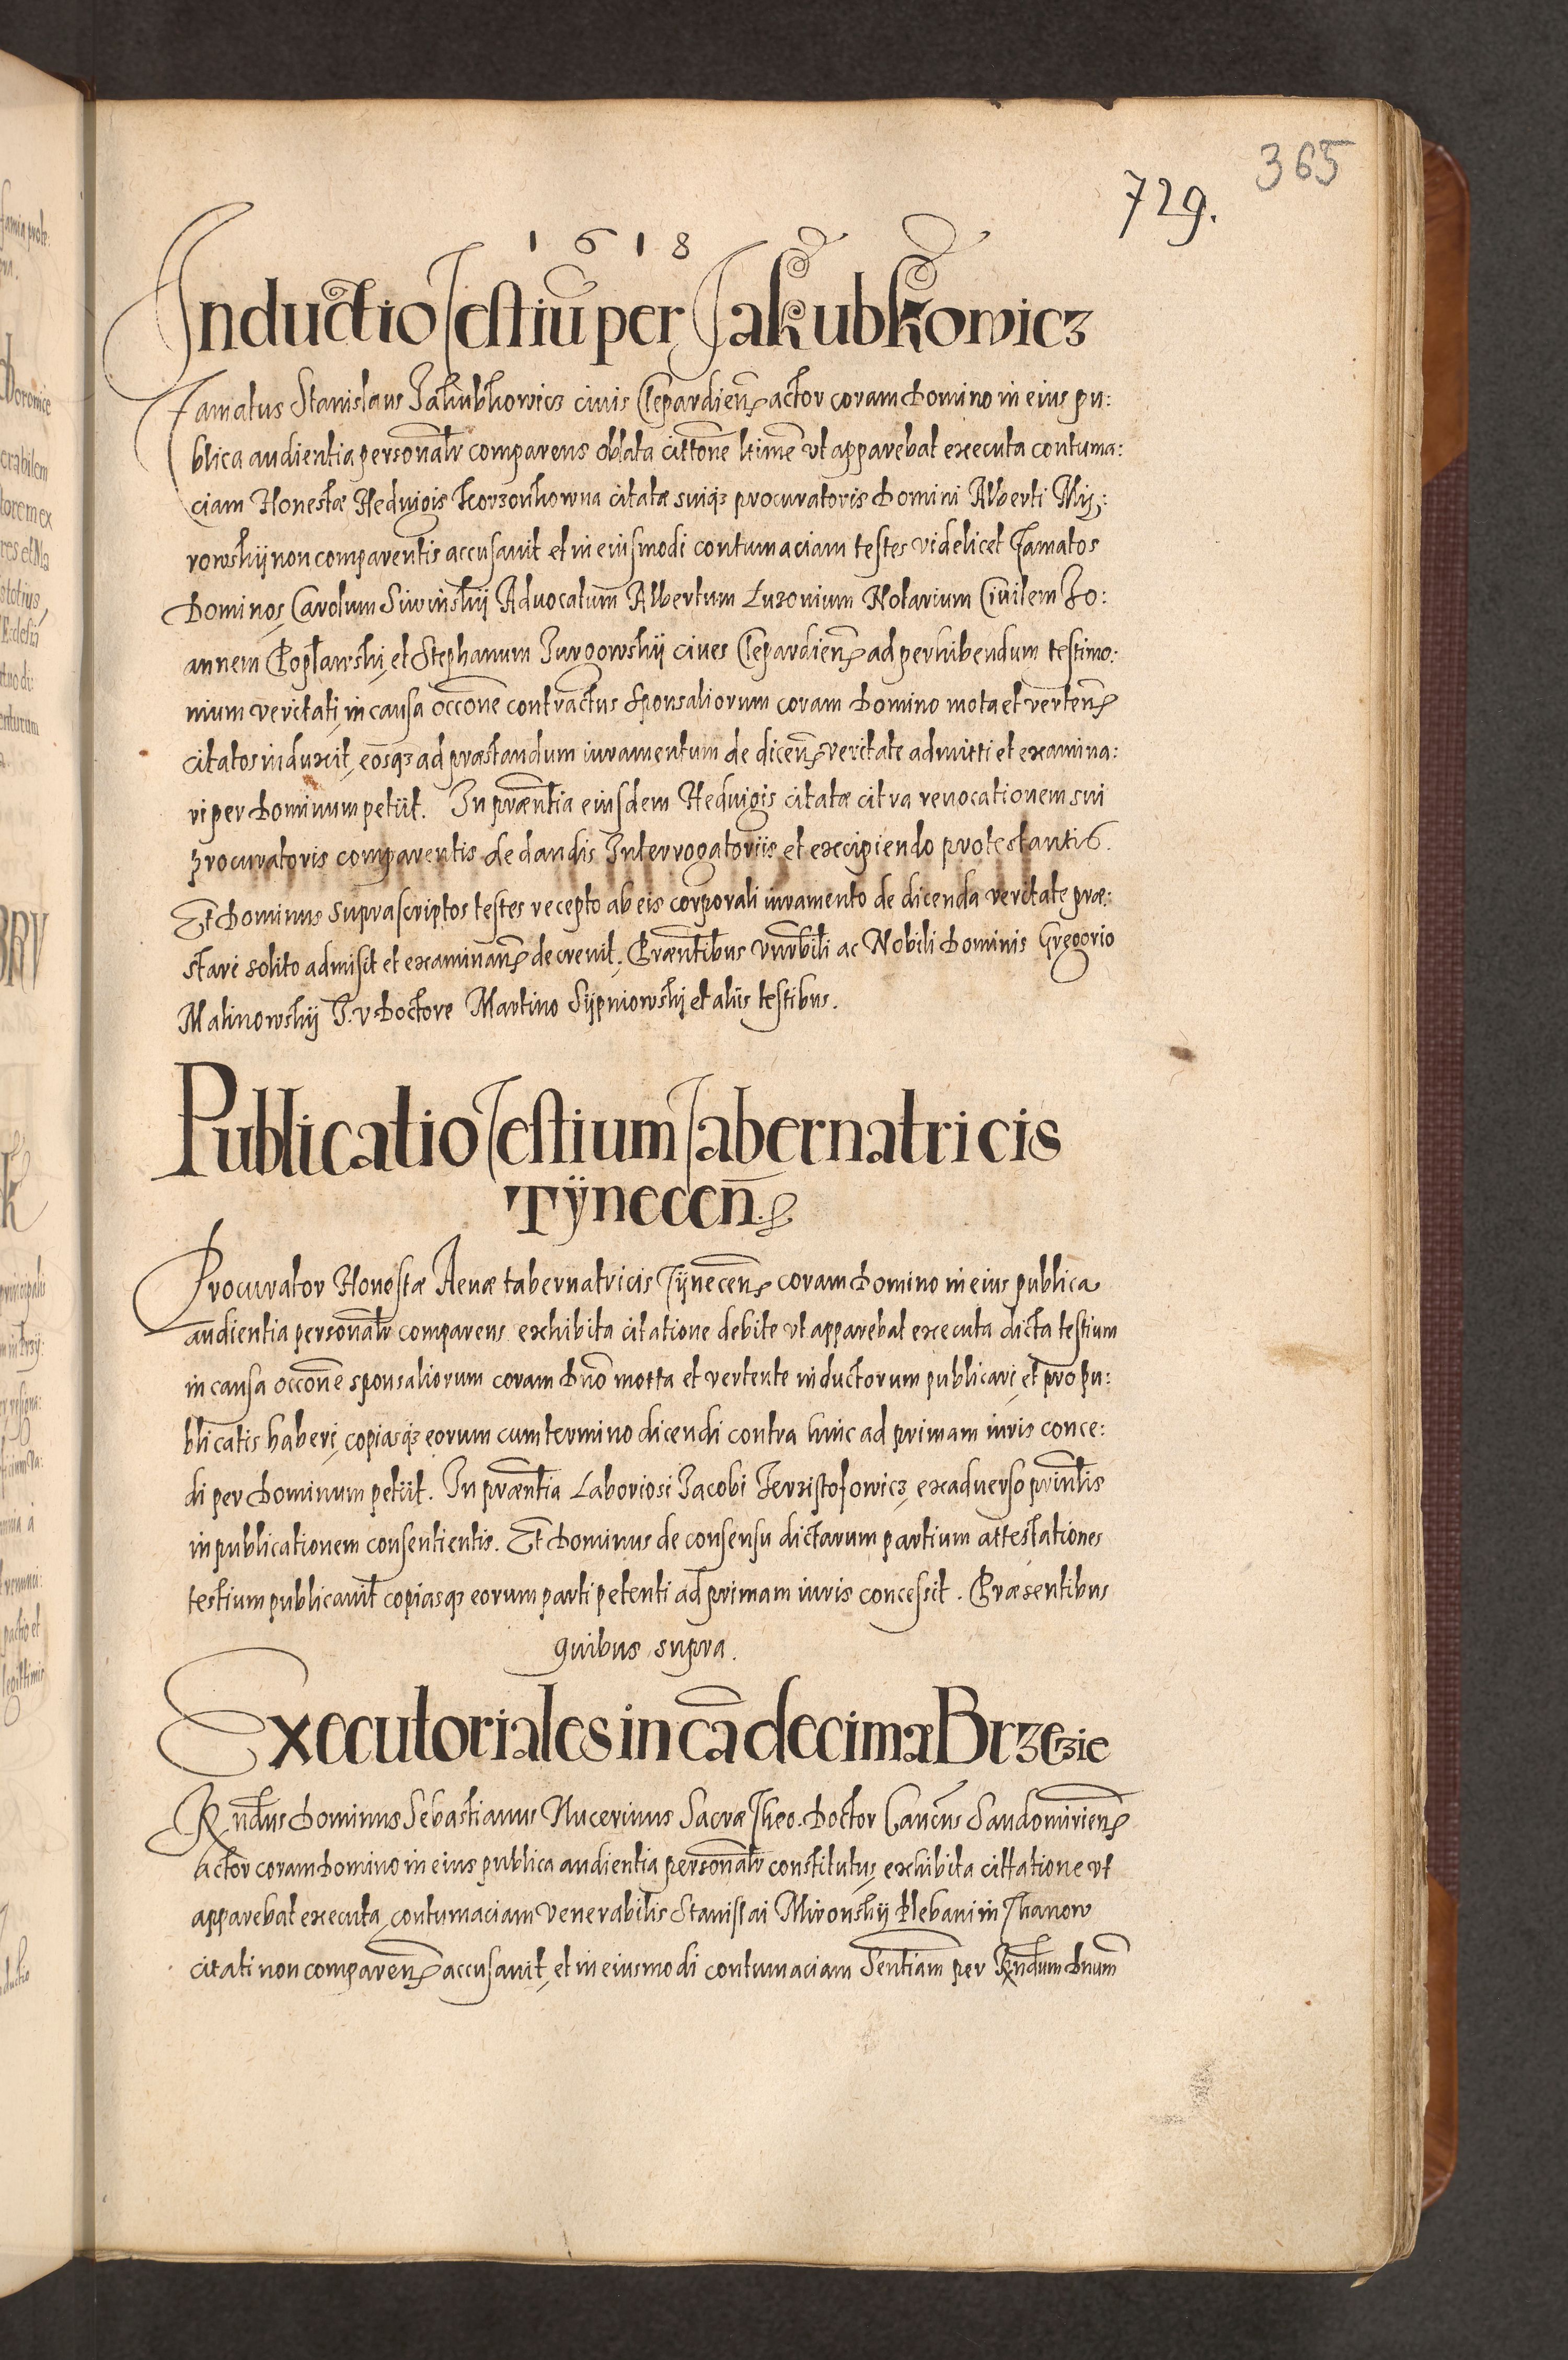 365
729.
1618
Inductio Testiū per Jakubkowicz
Famatus Stanislaus Jakubkowicz ciuis Clepardien̄ actor coram Domino in eius pu:
blica audientia personalr̄ comparens oblata citt̄one ltim̄e vt apparebat executa contuma:
ciam Honestæ Hedvigis Korzonkowna citatæ suiq3 procuratoris Domini Alberti Mij:
rowskij non comparentis accusauit et in eiusmodi contumaciam testes videlicet Famatos
Dominos Carolum Siwinskij Aduocatum̄ Albertum Luzonium Notarium Ciuilem Jo:
annem Poplawskj, et Stephanum Jurgowskij ciues Clepardien̄ ad perhibendum testimo:
nium veritati, in causa occōne contractus sponsaliorum coram Domino mota et verten̄
citatos induxit, eosq3 ad præstandum iuramentum de dicen̄ veritate admitti et examina:
ri per Dominum petiit. In præn̄tia eiusdem Hedvigis citatæ citra reuocationem sui
procuratoris comparentis de dandis Interrogatoriis et excipiendo protestantis.
Et Dominus suprascriptos testes recepto ab eis corporali iuramento de dicenda veritate præ:
stari solito admisit et examinan̄ decreuit. Præn̄tibus Vnrb̄ili ac Nobili Dominis Gregorio
Malinowskij J. V Doctore Martino Sijpniowskj et aliis testibus.
Publicatio Testium Tabernatricis
Tÿnecen̄
Procurator Honestæ tabernatricis Tÿnecen̄ coram Domino in eius publica
audientia personalr̄ comparens exhibita citatione debite vt apparebat executa dicta testium
in causa occōne sponsaliorum coram Dn̄o motta et vertente inductorum publicari, et pro pu:
blicatis haberi, copiasq3 eorum cum termino dicendi contra hinc ad primam iuris conce:
di per Dominum petiit. In præn̄tia Laboriosi Jacobi Krzistofowicz, ex aduerso prin̄tis
in publicationem consentientis. Et Dominus de consensu dictarum partium attestationes
testium publicauit copiasq3 eorum parti petenti ad primam iuris concessit. Præsentibus
quibus supra.
Executoriales in cā decimæ Brzezie
Rndus Dominus Sebastianus Nucerinus Sacræ Theo. Doctor Canc̄us Sandomirien̄
actor coram Domino in eius publica audientia personalr̄ constitutus, exhibita cittatione vt
apparebat executa, contumaciam Venerabilis Stanislai Mironskij Plebani in Thanow
citati non comparen̄ accusauit, et in eiusmodi contumaciam Sentiam̄ per Rndum Dnum̄